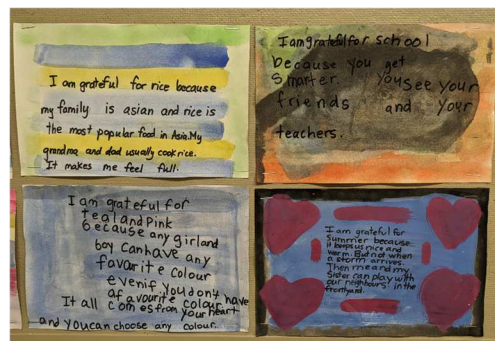 I am grateful for rice because
my family is asian and rice is
the most popular food in Asia. My
grandma and dad usually cook rice.
It makes me feel full.
I am grateful for school
because you get
smarter. You see your
friends and your
teachers.
I am grateful for
teal and pink
because any girl and
boy can have any
favourite colour
even if you don't have
a favourite colour.
It all comes from your heart
and you can choose any colour.
I am grateful for
Summer because
it keeps us nice and
warm. But not when
a storm arrives.
Then me and my
Sister can play with
our neighbours in the
frontyard.